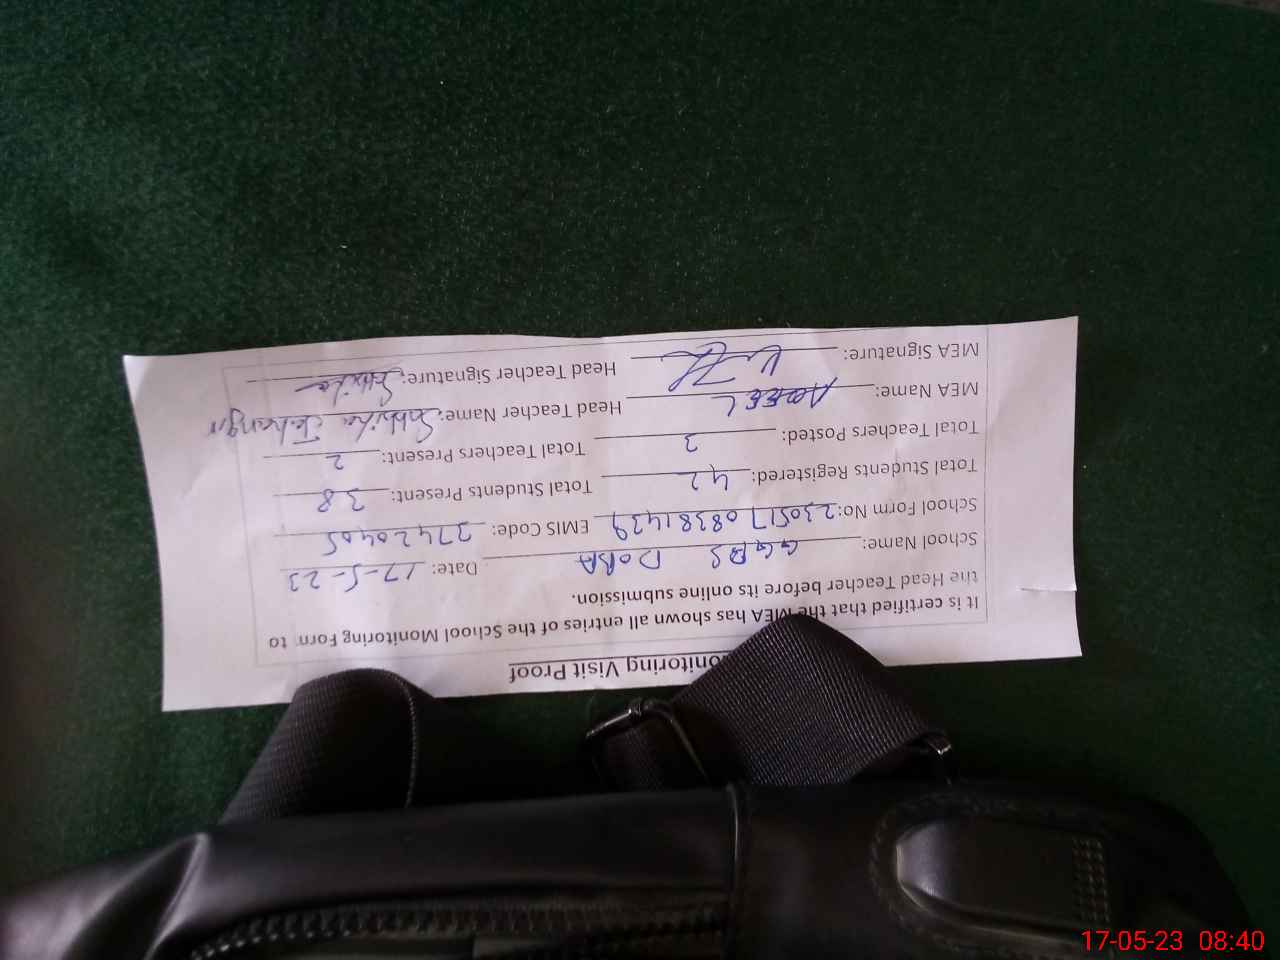 onitoring Visit Proof
It is certified that the MEA has shown all entries of the School Monitoring Form to
the Head Teacher before its online submission.
School Name: GGPS DOBA Date: 17-5-23
School Form No: 23051708381439 EMIS Code: 37420405
Total Students Registered: 42 Total Students Present: 38
Total Teachers Posted: 2 Total Teachers Present: 2
MEA Name: Head Teacher Name: Jahangir
MEA Signature: Head Teacher Signature:
17-05-23 08:40